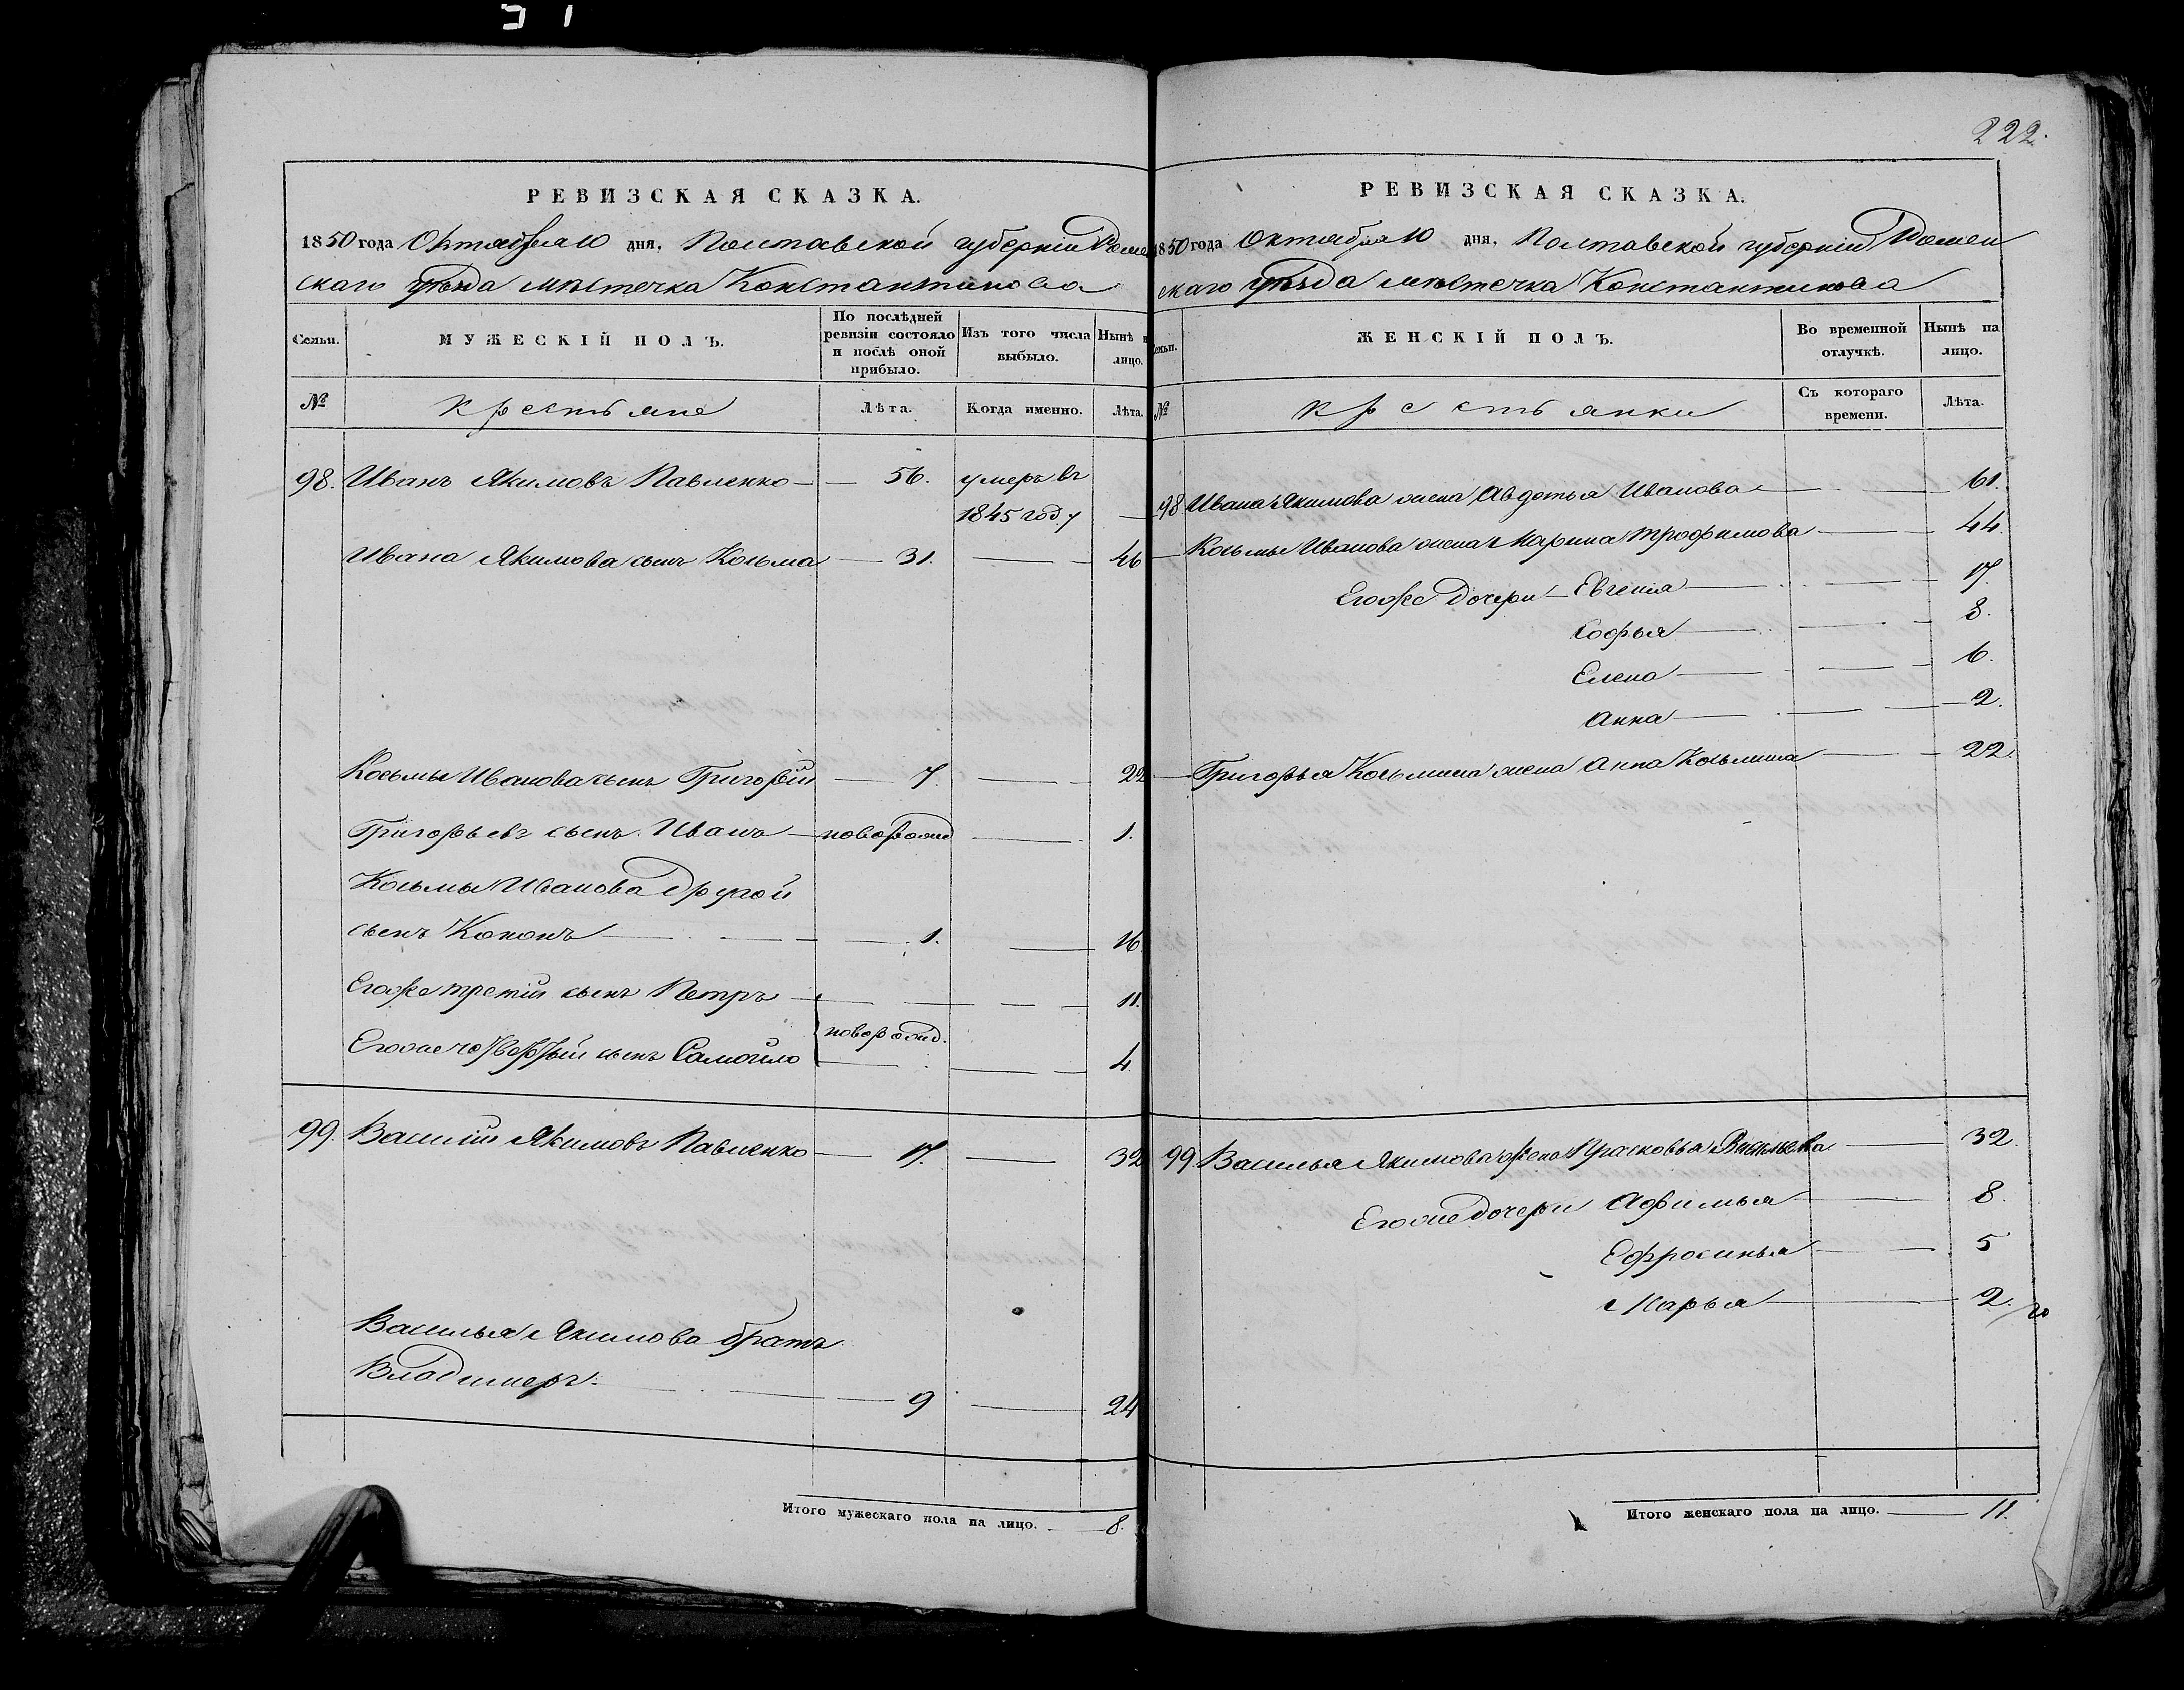 222.
РЕВИЗСКАЯ СКАЗКА.
1850 года Октября 10 дня, Полтавской губерніи Ромен
скаго уѣзда мѣстечка Константинова
Семьи.
МУЖЕСКІЙ ПОЛЪ.
По послѣдней ревизіи состояло и послѣ оной прибыло.
Изъ того числа выбыло.
Нынѣ на лицо.
№
Крестьяне
Лѣта.
Когда именно.
Лѣта.
98. Иванъ Якимовъ Павленко — 56. умеръ въ
1845 году —
Ивана Якимова сынъ Козьма — 31. — 46
Козьмы Иванова сынъ Григорій — 7. — 22
Григорьевъ сынъ Иванъ — новорожд — 1.
Козьмы Иванова другой
сынъ Кононъ — 1. — 16.
Егоже третій сынъ Петръ — 11.
новорожд.
Егоже четвертый сынъ Самойло — 4.
99. Василій Якимовъ Павленко — 17. — 32
Василья Якимова братъ
Владимеръ — 9 — 24
Итого мужескаго пола на лицо. — 8.
РЕВИЗСКАЯ СКАЗКА.
1850 года Октября 10 дня, Полтавской губерніи Ромен
скаго уѣзда мѣстечка Константинова
Семьи.
ЖЕНСКІЙ ПОЛЪ.
Во временной отлучкѣ.
Нынѣ на лицо.
№
Крестьянки
Съ котораго времени.
Лѣта.
98 Ивана Якимова жена Авдотья Иванова — 61.
Козьмы Иванова жена Марина Трофимова — 44.
Егоже дочери — Евгенія — 17.
Софья — 8.
Елена — 6.
Анна — 2.
Григорья Козьмина жена Анна Козьмина — 22.
99. Василья Якимова жена Прасковья Васильева — 32.
Егоже дочери Афимья — 8.
Ефросинья — 5
Марья — 2.
Итого женскаго пола на лицо. — 11.